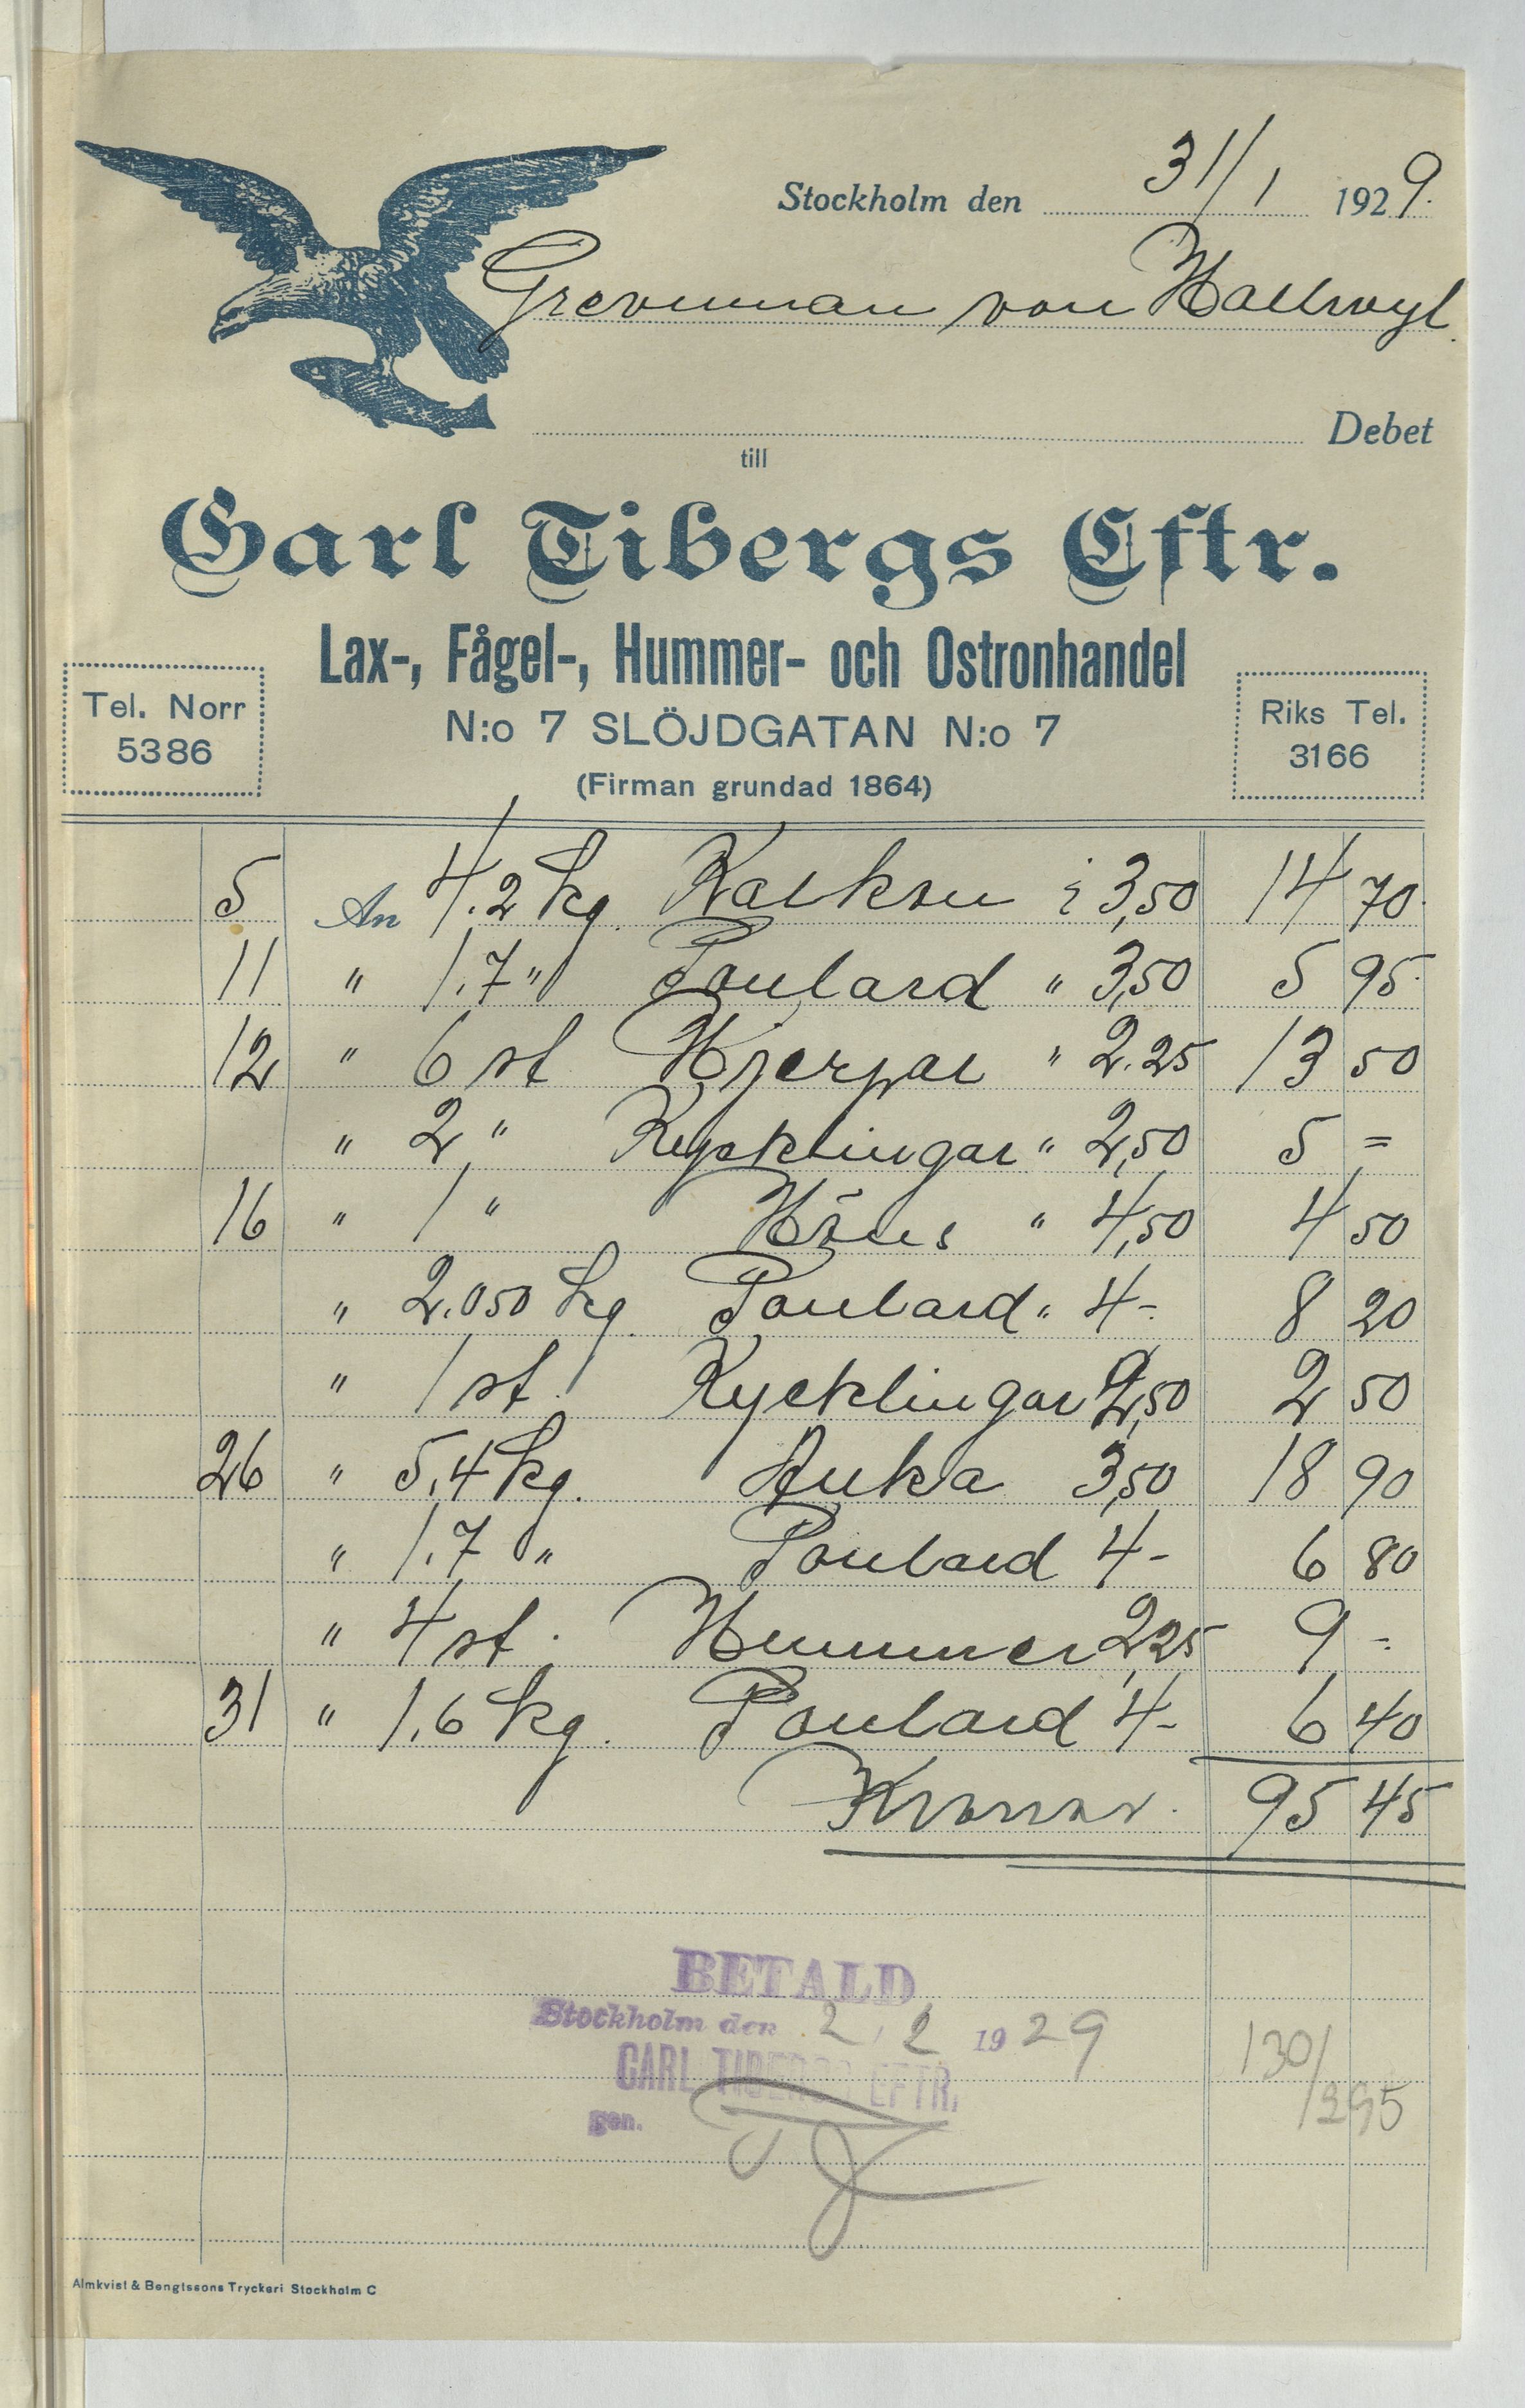 Stockholm den 31/1 1929.
Grevinnan von Hallwyl
Debet
till
Carl Tibergs Eftr.
Lax-, Fågel-, Hummer- och Ostronhandel
Tel. Norr
5386
N:o 7 SLÖJDGATAN N:o 7
Riks Tel.
3166
(Firman grundad 1864)
5 An 4.2 kg. Kalkon à 3,50 14 70
11 " 1.7 " Poulard " 3,50 5 95
12 " 6 st Hjerpar " 2.25 13 50
" 2 " Kycklingar " 2,50 5 =
16 " 1 " Höns " 4,50 4 50
" 2.050 kg. Poulard " 4- 8 20
" 1 st. Kycklingar 2,50 2 50
26 " 5.4 kg. Anka 3,50 18 90
" 1.7 " Poulard 4- 6 80
" 4 st. Hummer 2,25 9 -
31 " 1.6 kg. Poulard 4- 6 40
Kronor. 95 45
BETALD
Stockholm den 2/2 1929
CARL TIBERGS EFTR.
gen.
130/
Almkvist & Bengtssons Tryckeri Stockholm C